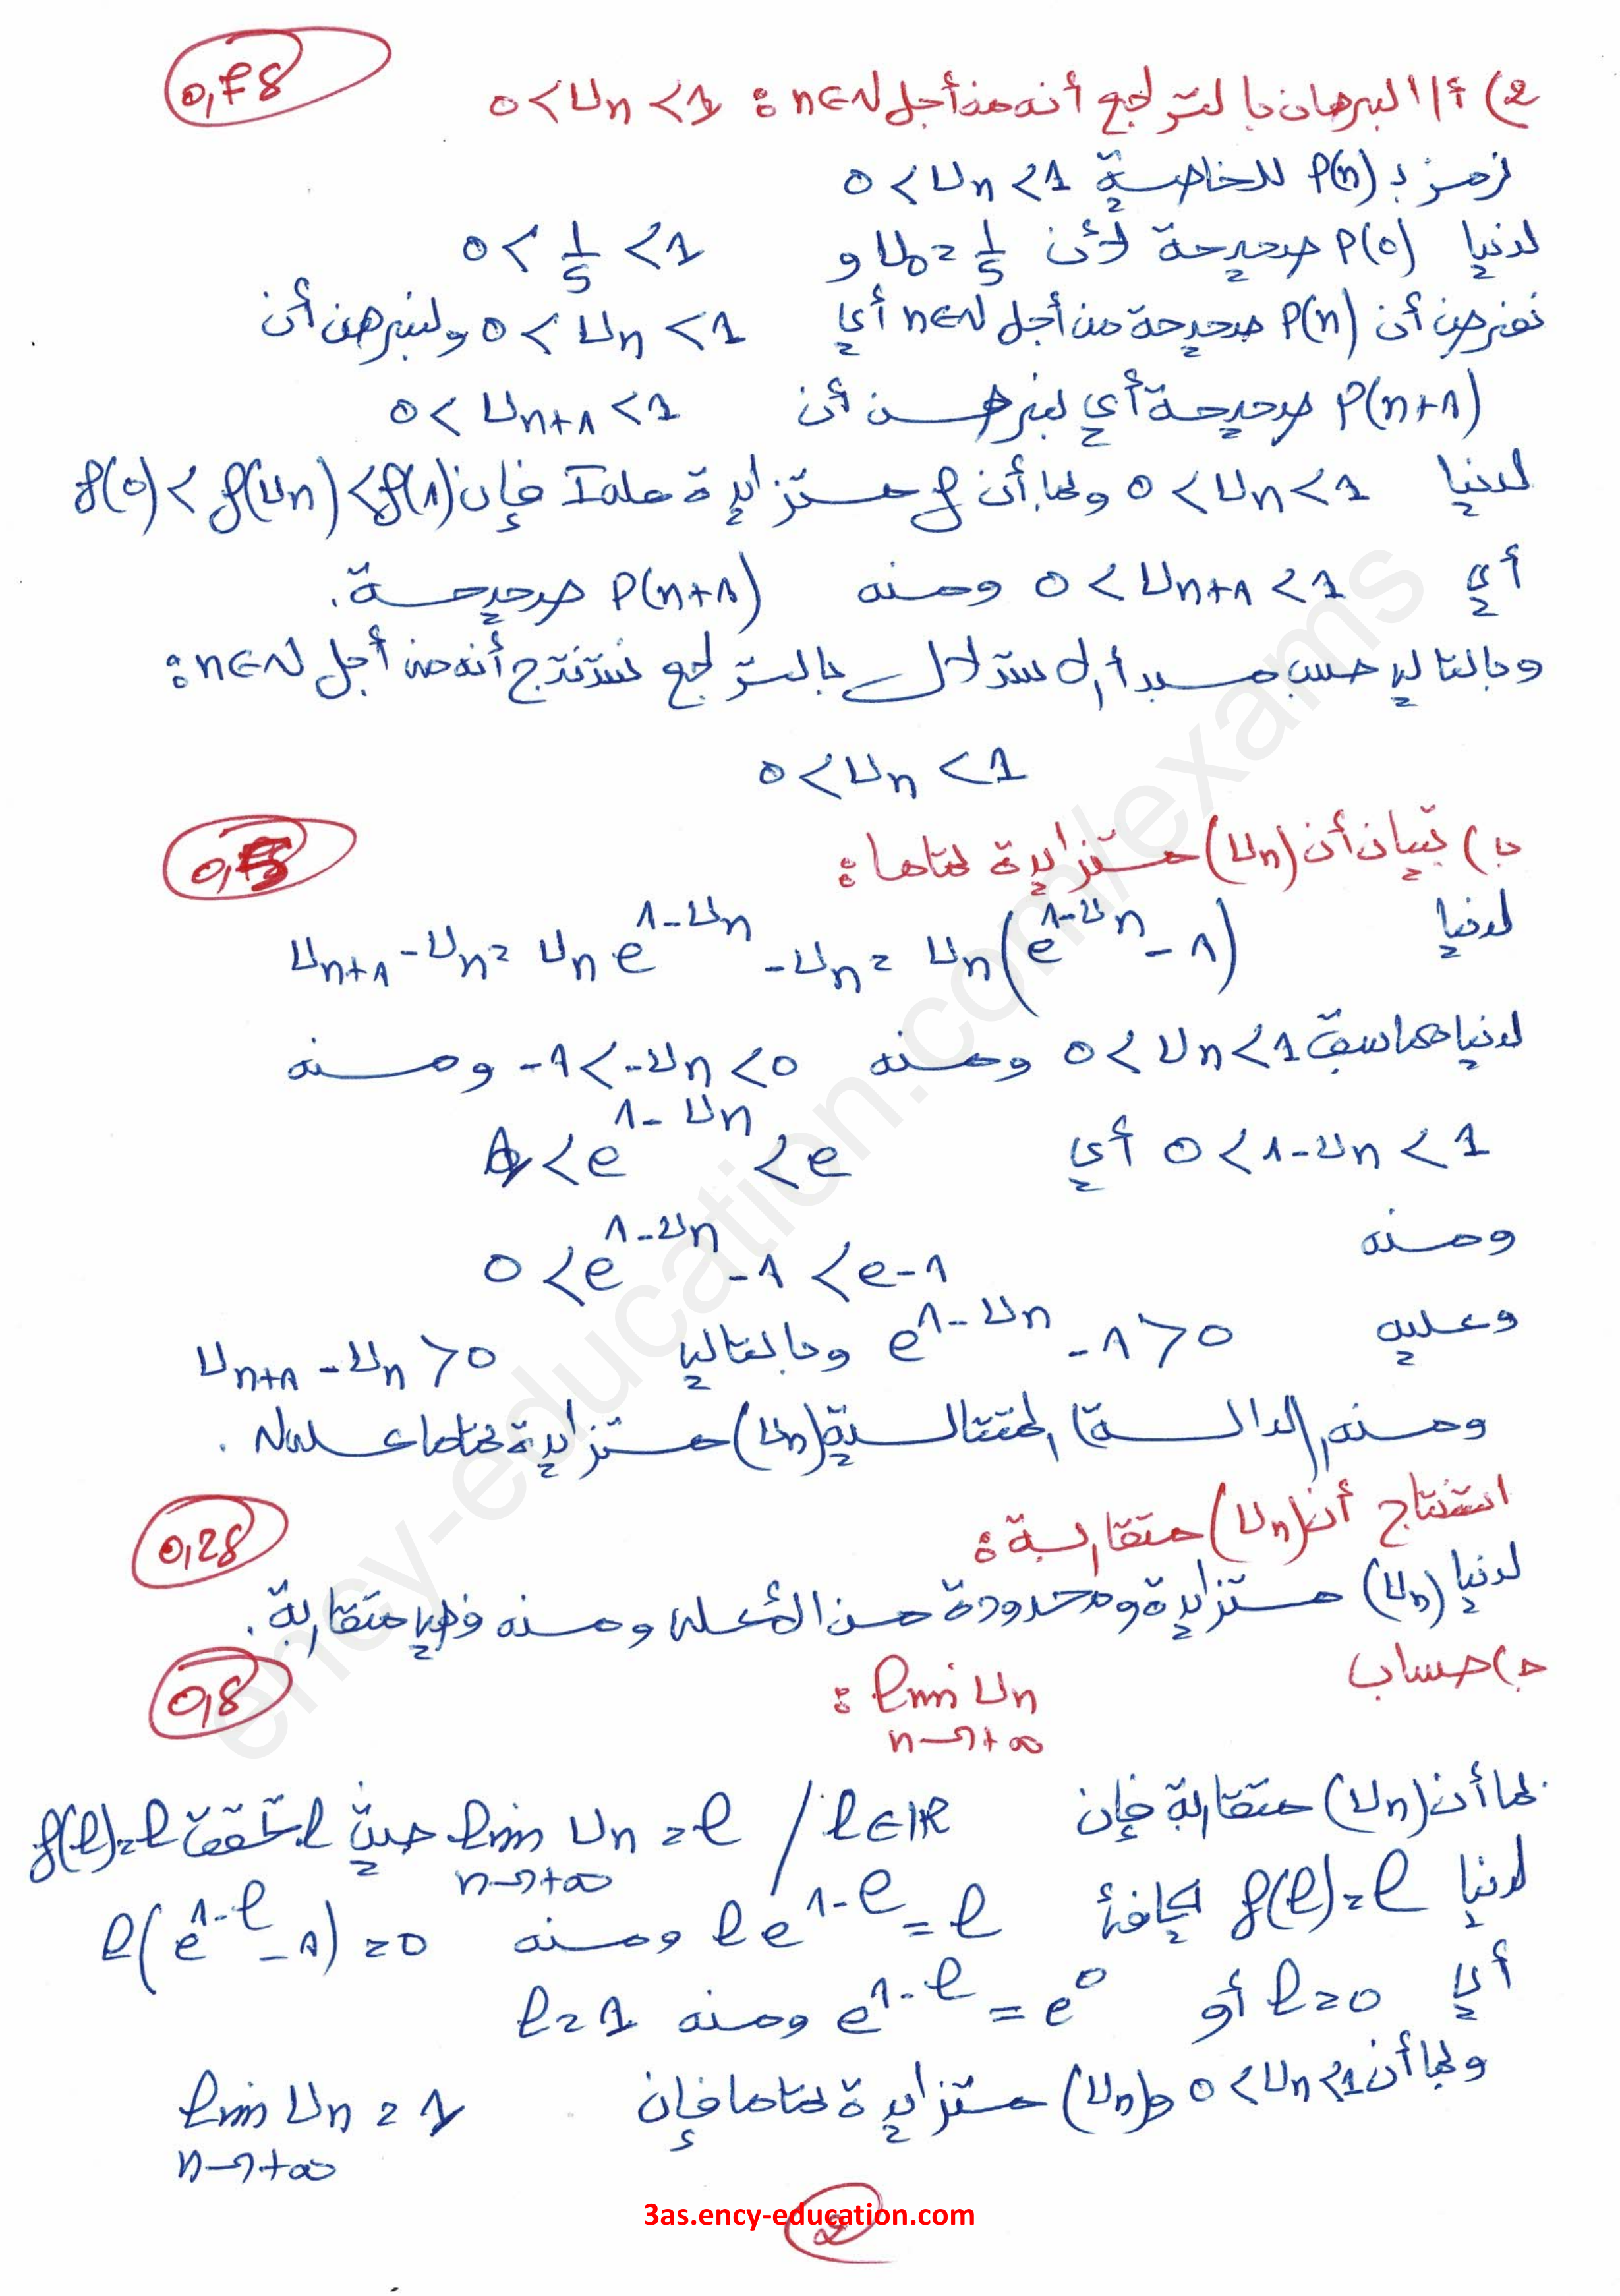 0,75
2) أ/ البرهان بالتراجع أنه من أجل n∈ℕ : 0 < Un < 1
نرمز بـ P(n) للخاصية 0 < Un < 1
لدينا P(0) صحيحة لأن U0 = 1/5 و 0 < 1/5 < 1
نفرض أن P(n) صحيحة من أجل n∈ℕ أي 0 < Un < 1 ولنبرهن أن
P(n+1) صحيحة أي نبرهن أن 0 < Un+1 < 1
لدينا 0 < Un < 1 وبما أن f متزايدة على I فإن f(0) < f(Un) < f(1)
أي 0 < Un+1 < 1 ومنه P(n+1) صحيحة.
وبالتالي حسب مبدأ الاستدلال بالتراجع نستنتج أنه من أجل n∈ℕ :
0 < Un < 1
0,5
ب) تبيان أن (Un) متزايدة تماما :
لدينا Un+1 - Un = Un e^(1-Un) - Un = Un(e^(1-Un) - 1)
لدينا مما سبق 0 < Un < 1 ومنه -1 < -Un < 0 ومنه
0 < 1-Un < 1 أي 1 < e^(1-Un) < e
ومنه 0 < e^(1-Un) - 1 < e-1
وعليه e^(1-Un) - 1 > 0 وبالتالي Un+1 - Un > 0
ومنه (الدالة) المتتالية (Un) متزايدة تماما على ℕ.
0,25
استنتاج أن (Un) متقاربة :
لدينا (Un) متزايدة ومحدودة من الأعلى ومنه فهي متقاربة.
0,5
ج) حساب lim Un :
n→+∞
بما أن (Un) متقاربة فإن lim Un = l / l∈ℝ حيث l تحقق f(l)=l
n→+∞
لدينا f(l)=l يكافئ l e^(1-l) = l ومنه l(e^(1-l) - 1) = 0
أي l=0 أو e^(1-l) = e^0 ومنه l=1
وبما أن 0 < Un < 1 و (Un) متزايدة تماما فإن lim Un = 1
n→+∞
3as.ency-education.com
2
ency-education.com/exams